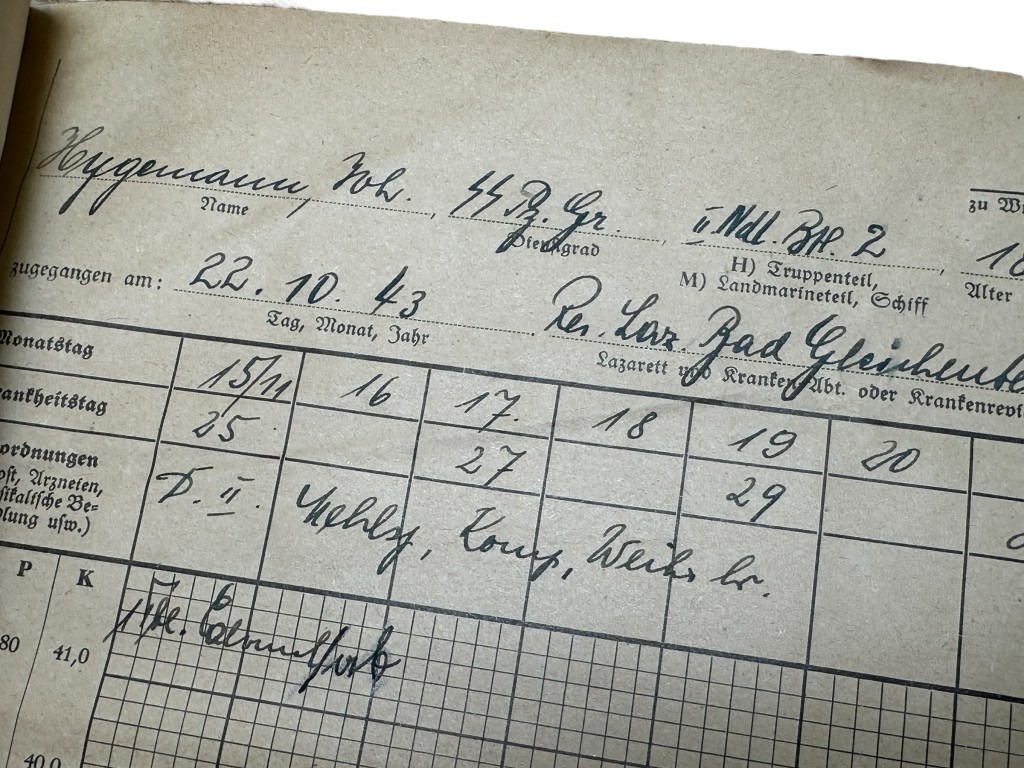 Hygemann, Joh. SS Pz. Gr. II Ndl. Btl. 2 18
Name Dienstgrad H) Truppenteil, Alter zu W
M) Landmarineteil, Schiff
zugegangen am: 22. 10. 43 Res. Laz. Bad Gleichenbe
Tag, Monat, Jahr Lazarett und Kranken-Abt. oder Krankenrevi
Monatstag 15/11 16 17. 18 19 20
ankheitstag 25 27 29
ordnungen D. II.
ost, Arzneien, Komp,
sikalische Be-
dlung usw.)
P K
80 41,0
40,0